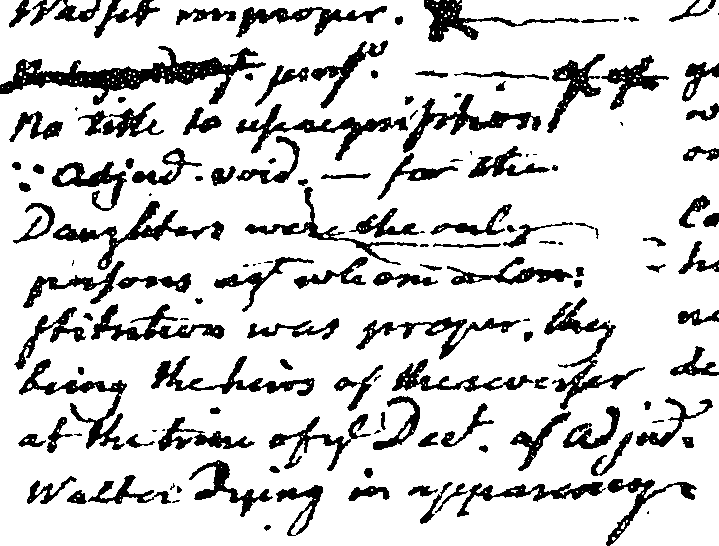 Wadset improper.
perss.
No title to usucapition
∵ Adjud. void. — for the
Daughters were the only
persons agt whom a Con:
stitution was proper, they
being the heirs of the reverser
at the time of ye Decrt. of Adjud:
Walter Dying in apparency